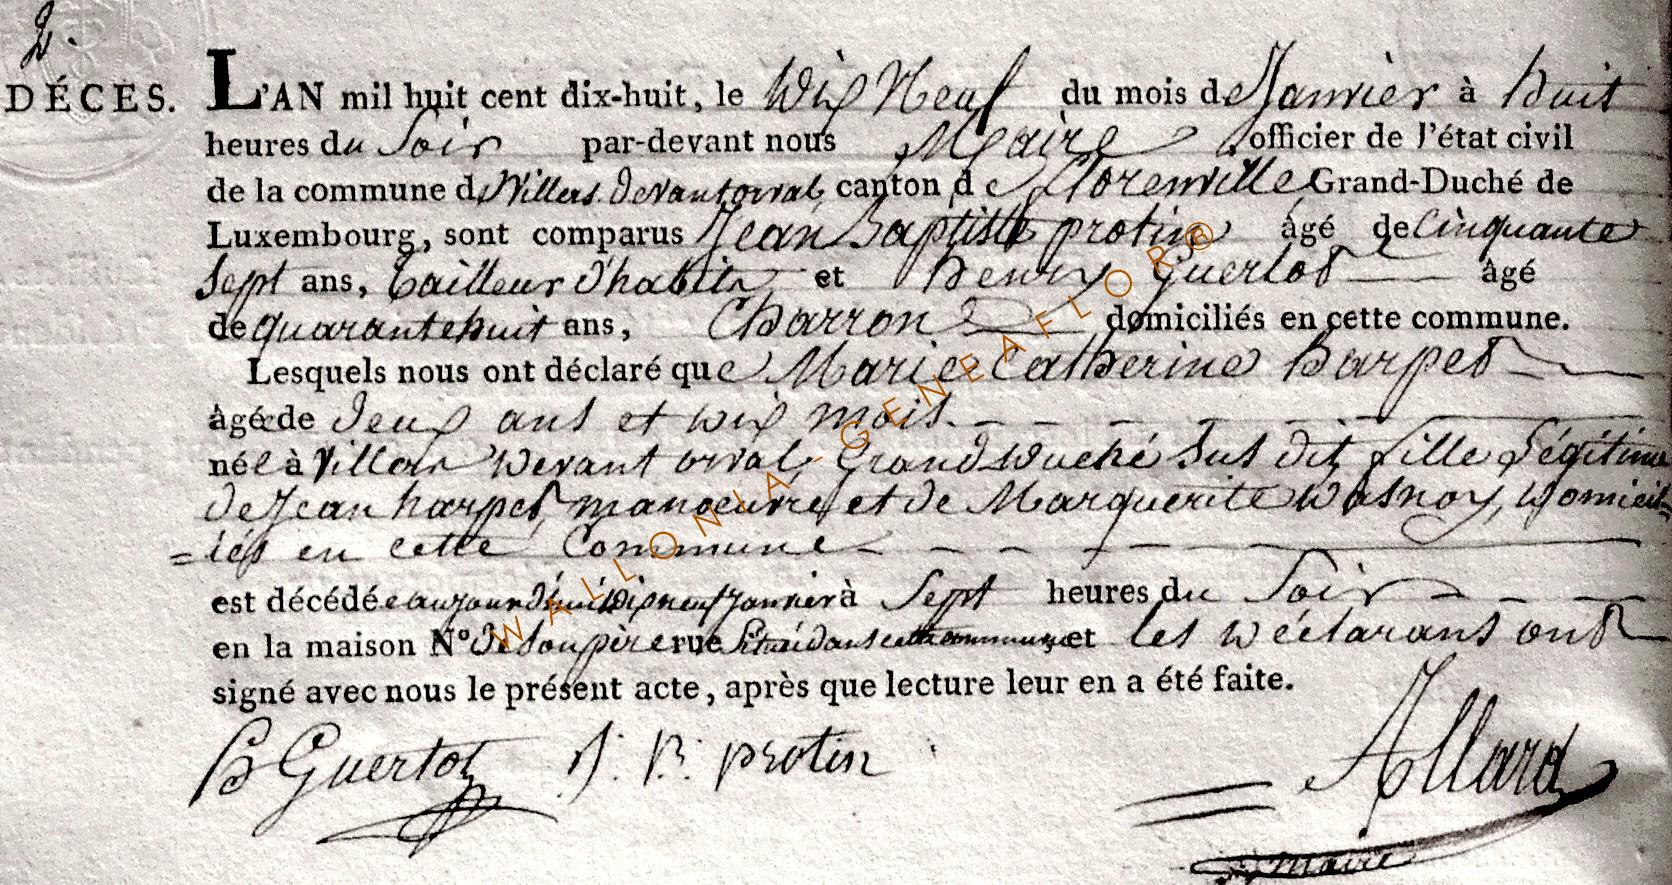 2.
DÉCÈS.
L'AN mil huit cent dix-huit, le Dix Neuf du mois de Janvier à huit
heures du Soir par-devant nous Maire officier de l'état civil
de la commune d Villers devant orval, canton de florenville Grand-Duché de
Luxembourg, sont comparus Jean Baptiste protin âgé de Cinquante
Sept ans, tailleur d'habits et henry Guerlot âgé
de quarante huit ans, Charron domiciliés en cette commune.
Lesquels nous ont déclaré que Marie Catherine harpet
âgée de deux ans et dix mois.
née à Villers Devant orval, Grand duché sus dit, fille légitime
de Jean harpet, manoeuvre, et de Marguerite Wasnoy, Domicil=
=iés en cette Commune
est décédée aujourd'hui dix neuf janvier à Sept heures du Soir
en la maison N.º de son père rue Situé dans cette commune, et les déclarans ont
signé avec nous le présent acte, après que lecture leur en a été faite.
H Guerlot J: B: protin Allard
maire
WALLONIA-GENEAFLOR®